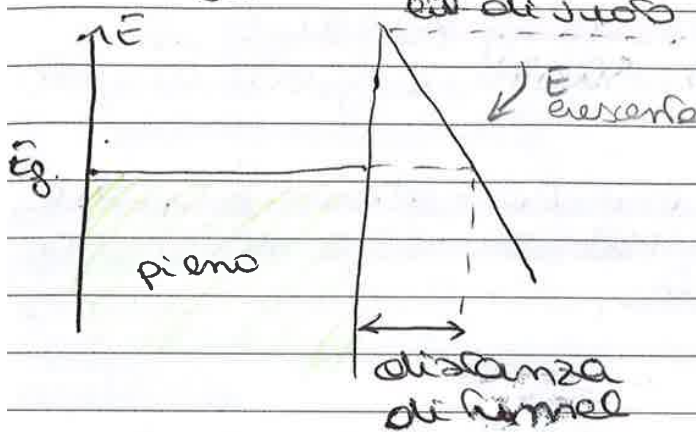 liv di vuoto
E
E
crescente
Ef
pieno
distanza
di tunnel